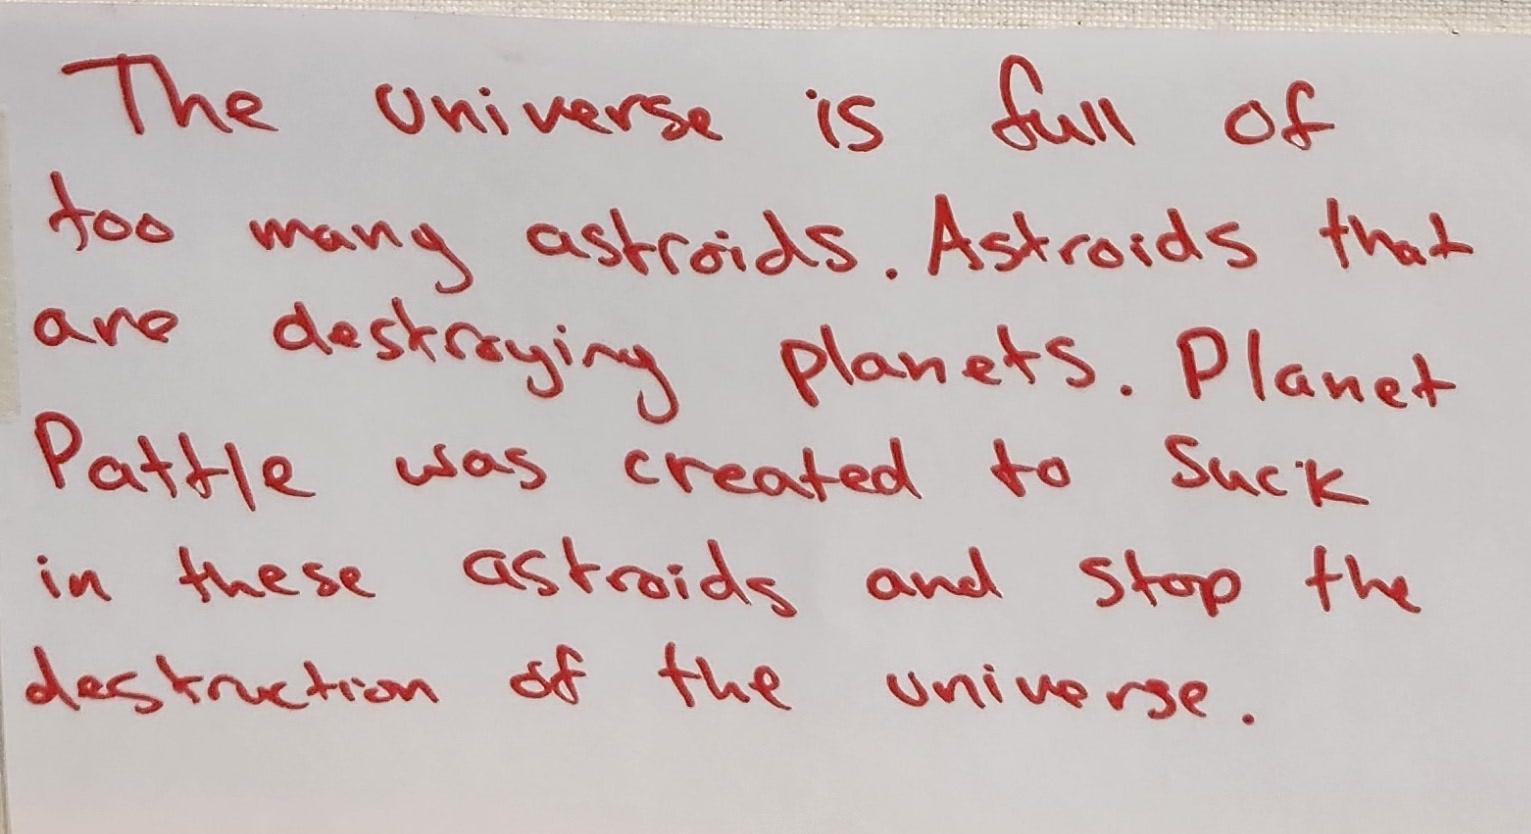 The universe is full of
too many astroids. Astroids that
are destroying planets. Planet
Pattle was created to suck
in these astroids and stop the
destruction of the universe.